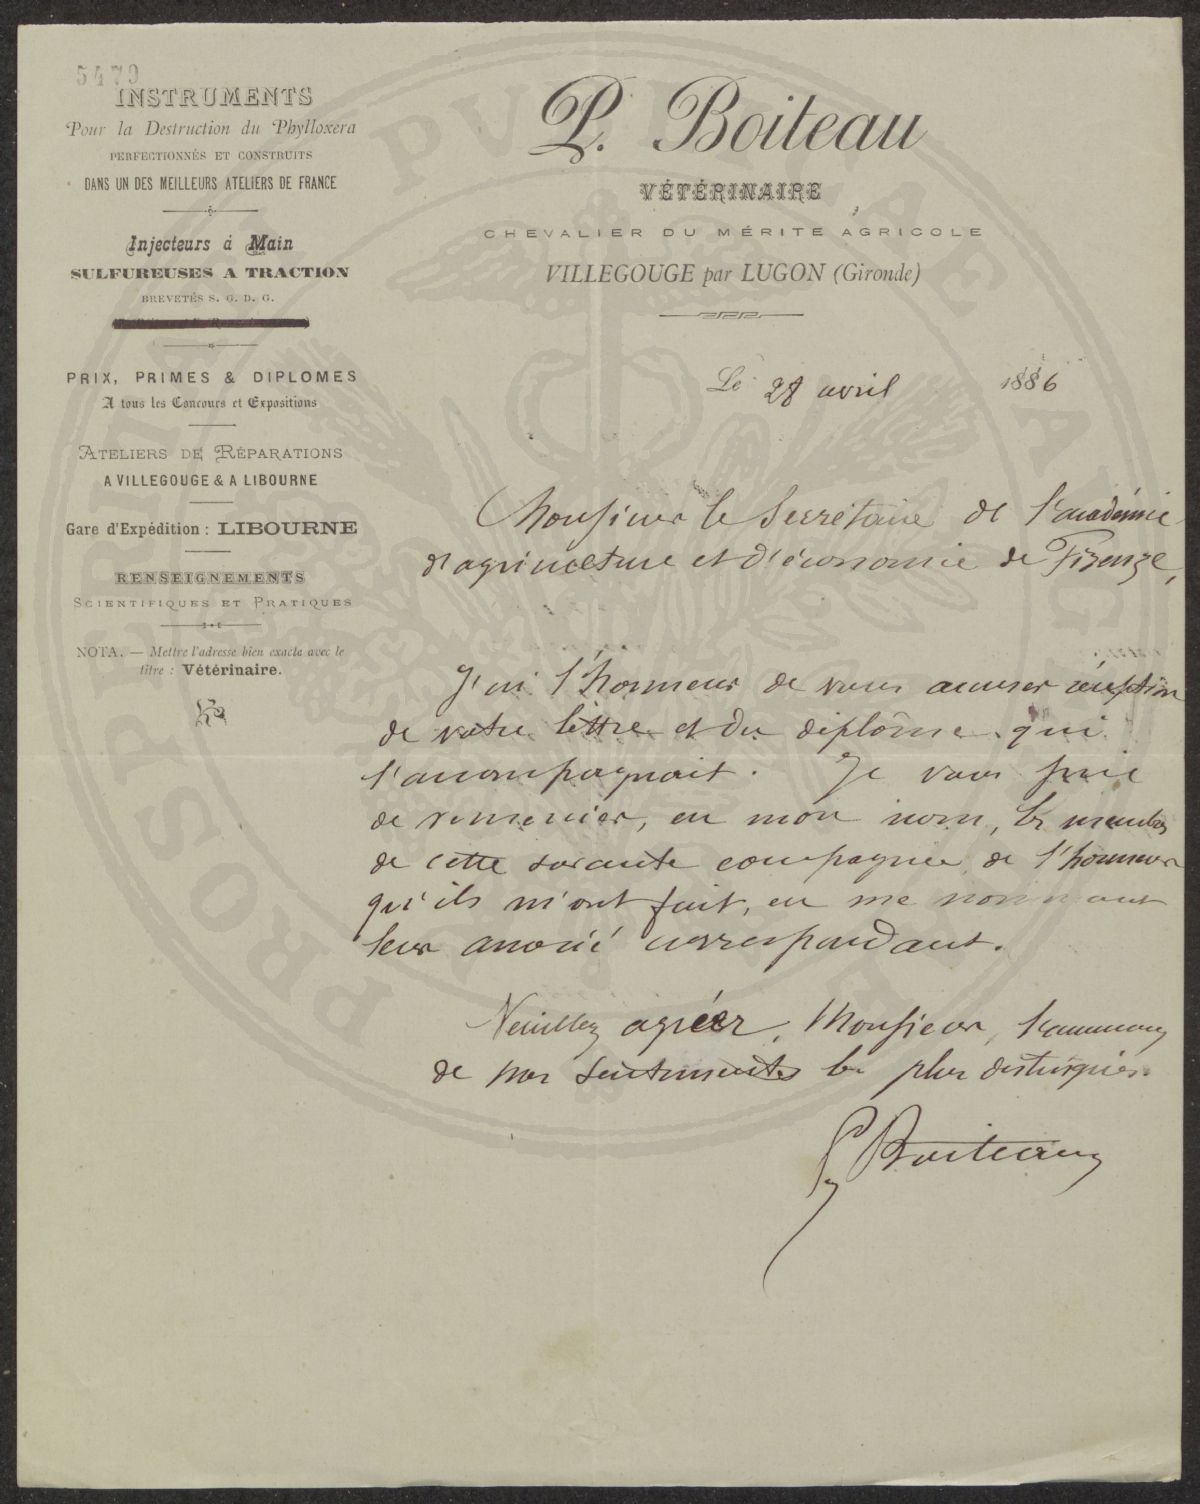 5479
INSTRUMENTS
Pour la Destruction du Phylloxera
PERFECTIONNÉS ET CONSTRUITS
DANS UN DES MEILLEURS ATELIERS DE FRANCE
Injecteurs à Main
SULFUREUSES A TRACTION
BREVETÉS S. G. D. G.
PRIX, PRIMES & DIPLOMES
A tous les Concours et Expositions
ATELIERS DE RÉPARATIONS
A VILLEGOUGE & A LIBOURNE
Gare d'Expédition : LIBOURNE
RENSEIGNEMENTS
SCIENTIFIQUES ET PRATIQUES
NOTA. — Mettre l'adresse bien exacte avec le
titre : Vétérinaire.
P. Boiteau
VÉTÉRINAIRE
CHEVALIER DU MÉRITE AGRICOLE
VILLEGOUGE par LUGON (Gironde)
Le 28 avril 1886
Monsieur le Secrétaire de l'académie
d'agriculture et d'économie de Firenze,
J'ai l'honneur de vous accuser réception
de votre lettre et du diplôme qui
l'accompagnait. Je vous prie
de remercier, en mon nom, les membres
de cette savante compagnie de l'honneur
qu'ils m'ont fait, en me nommant
leur associé correspondant.
Veuillez agréer, Monsieur, l'assurance
de mes sentiments les plus distingués.
P Boiteau
PROSPERITATI PVBLICAE AVGENDAE